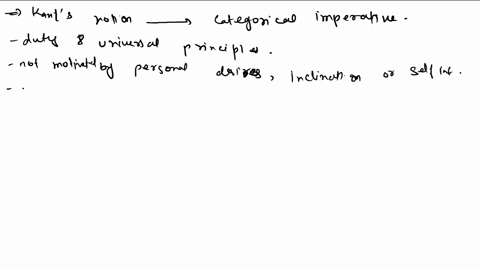 ⇒ Kant's notion → categorical imperative.
- duty & universal principles.
- not motivated by personal drives, inclination or self int.
- .